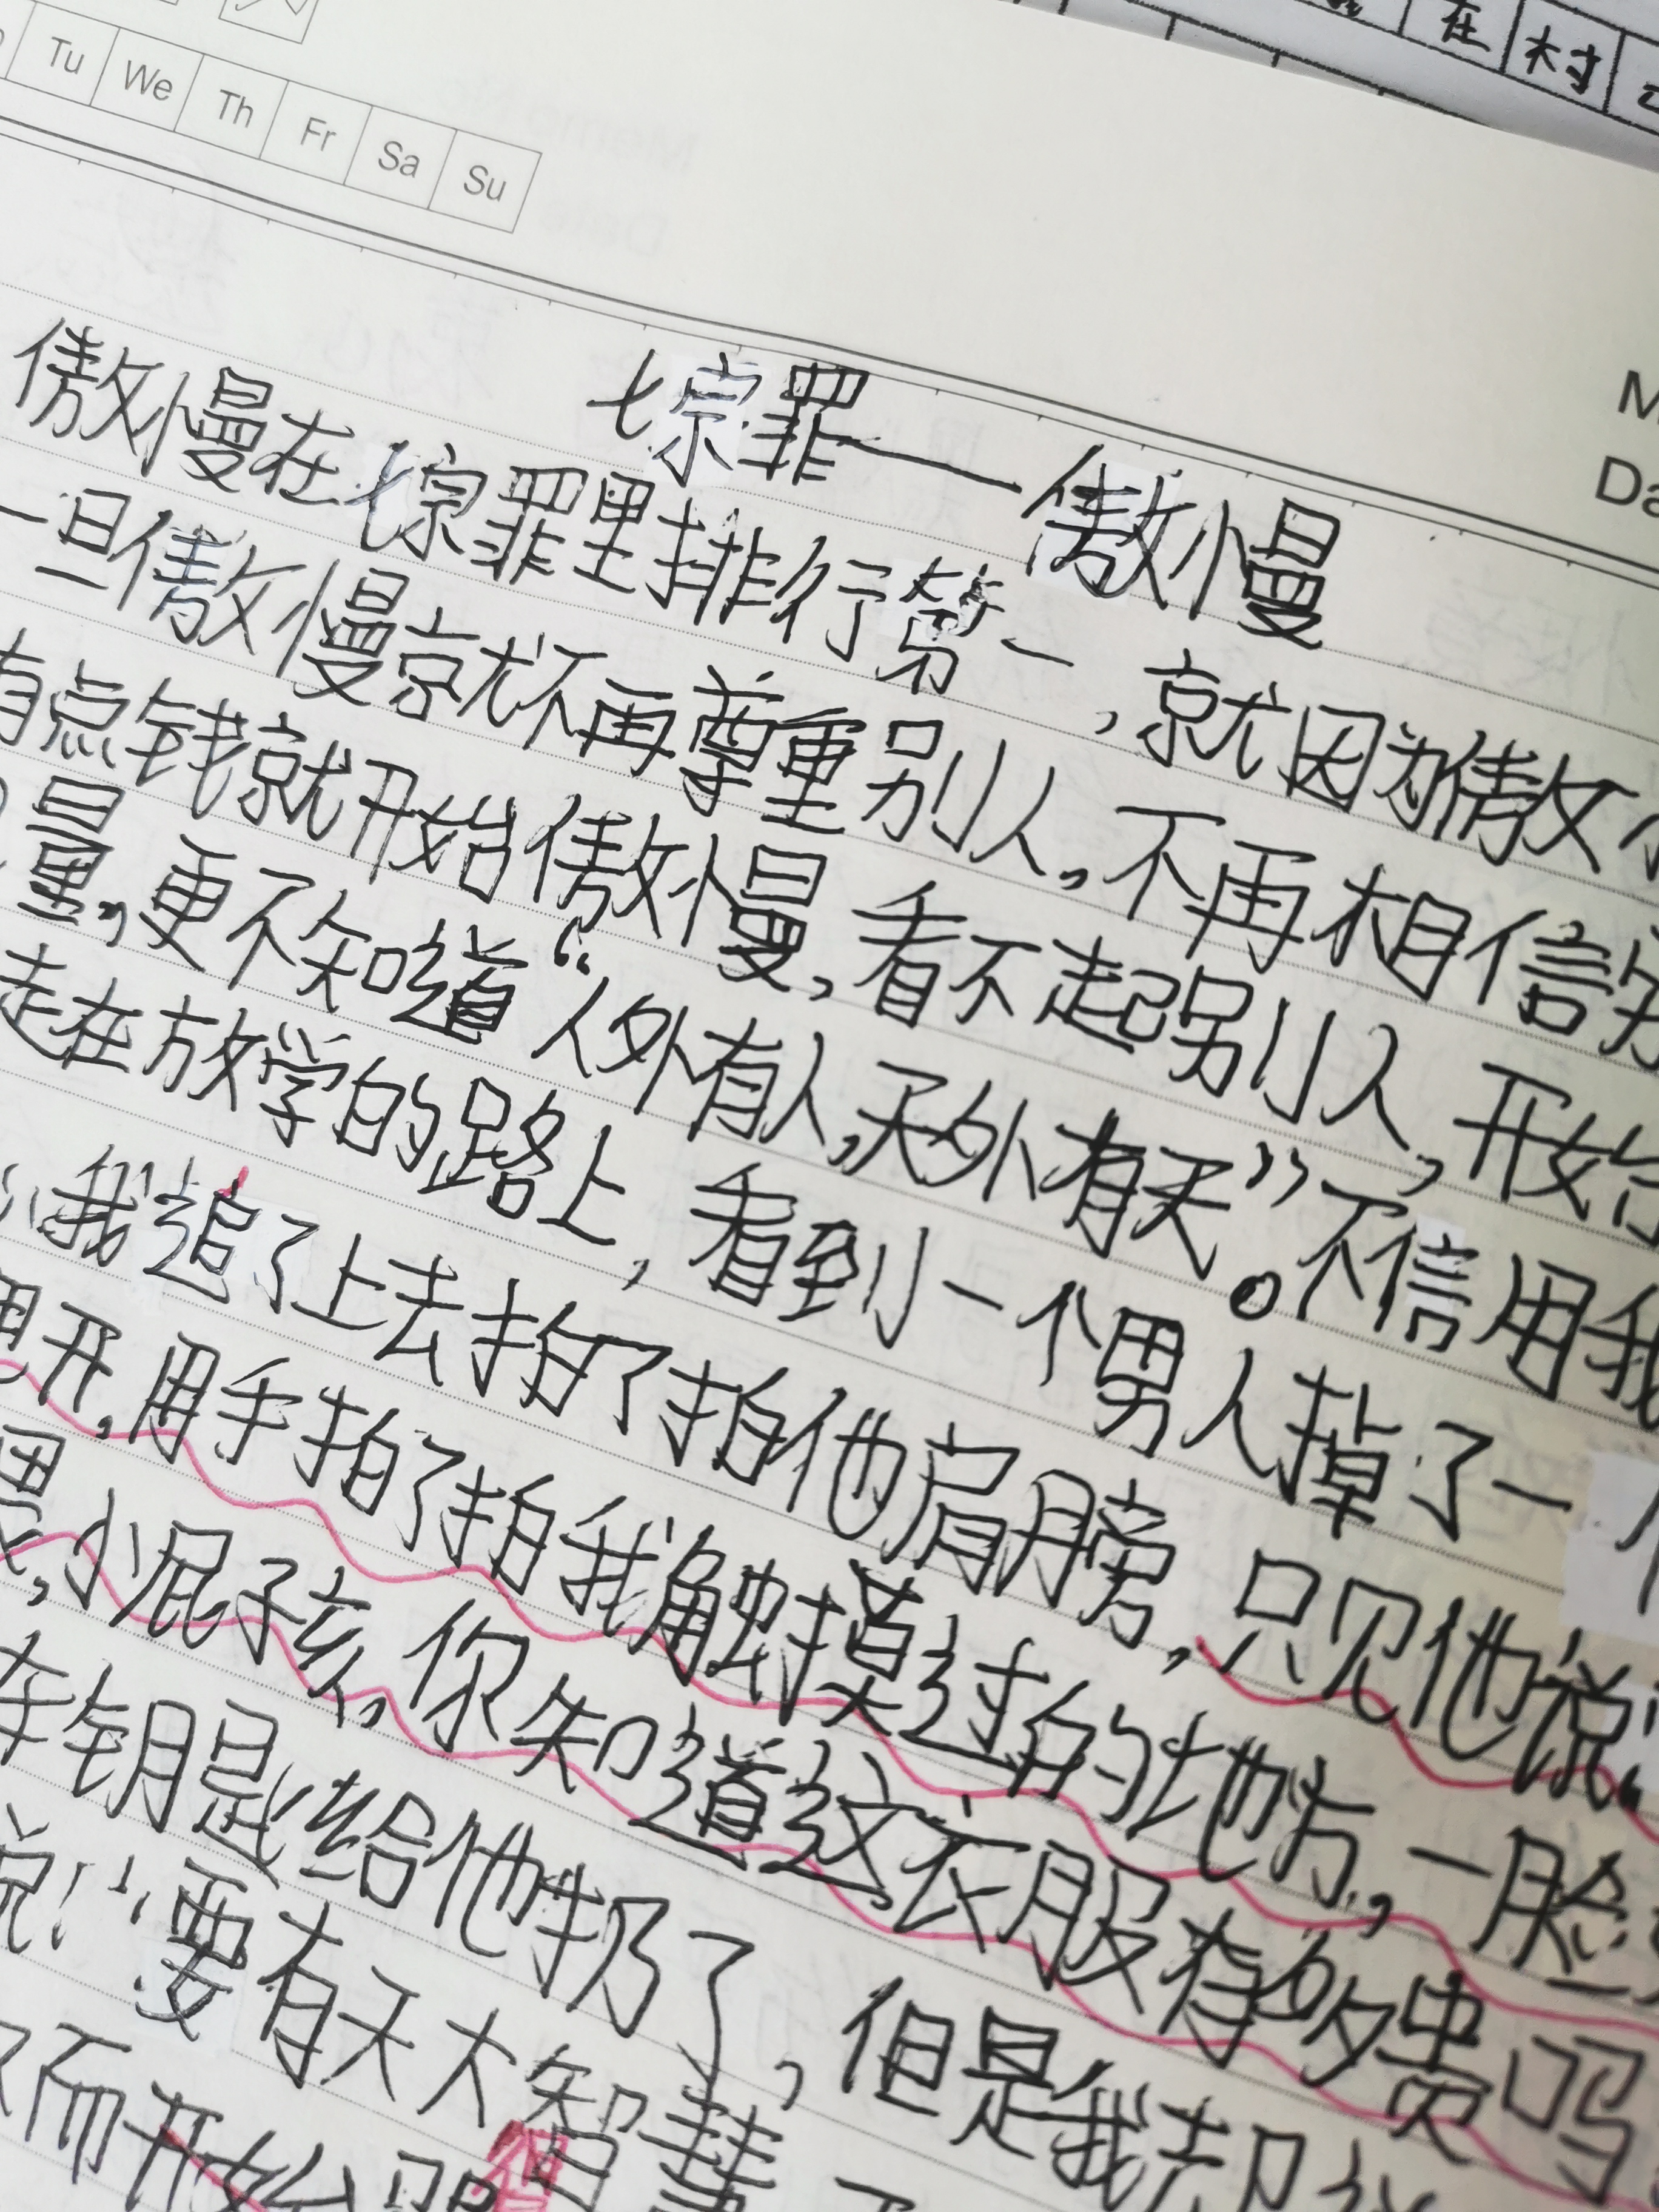 在 村
Tu We Th Fr Sa Su
七宗罪——傲慢
傲慢在七宗罪里排行第一,就因为傲
一旦傲慢就不再尊重别人,不再相信
有点钱就开始傲慢,看不起别人,开始
量,更不知道“人外有人,天外有天”。不信用我
走在放学的路上,看到一个男人掉了一
我追了上去拍了拍他肩膀,只见他说
开,用手拍了拍我触摸过的地方,一脸
小屁孩,你知道这衣服有多贵吗
车钥匙给他扔了,但是我却
说:“要有天大智慧
而开始